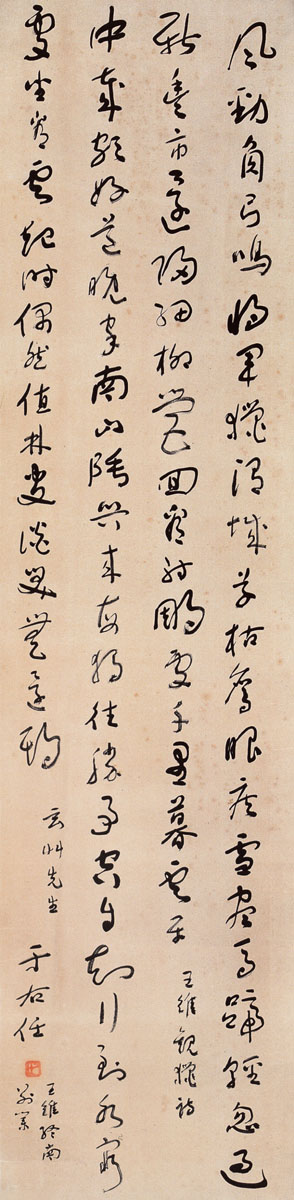 風勁角弓鳴將軍獵渭城草枯鷹眼疾雪盡馬蹄輕忽過
新豐市還歸細柳營回看射鵰處千里暮雲平 王維觀獵詩
中歲頗好道晚家南山陲興來每獨往勝事空自知行到水窮
處坐看雲起時偶然值林叟談笑無還期
先生
于右任
王維終南
別業